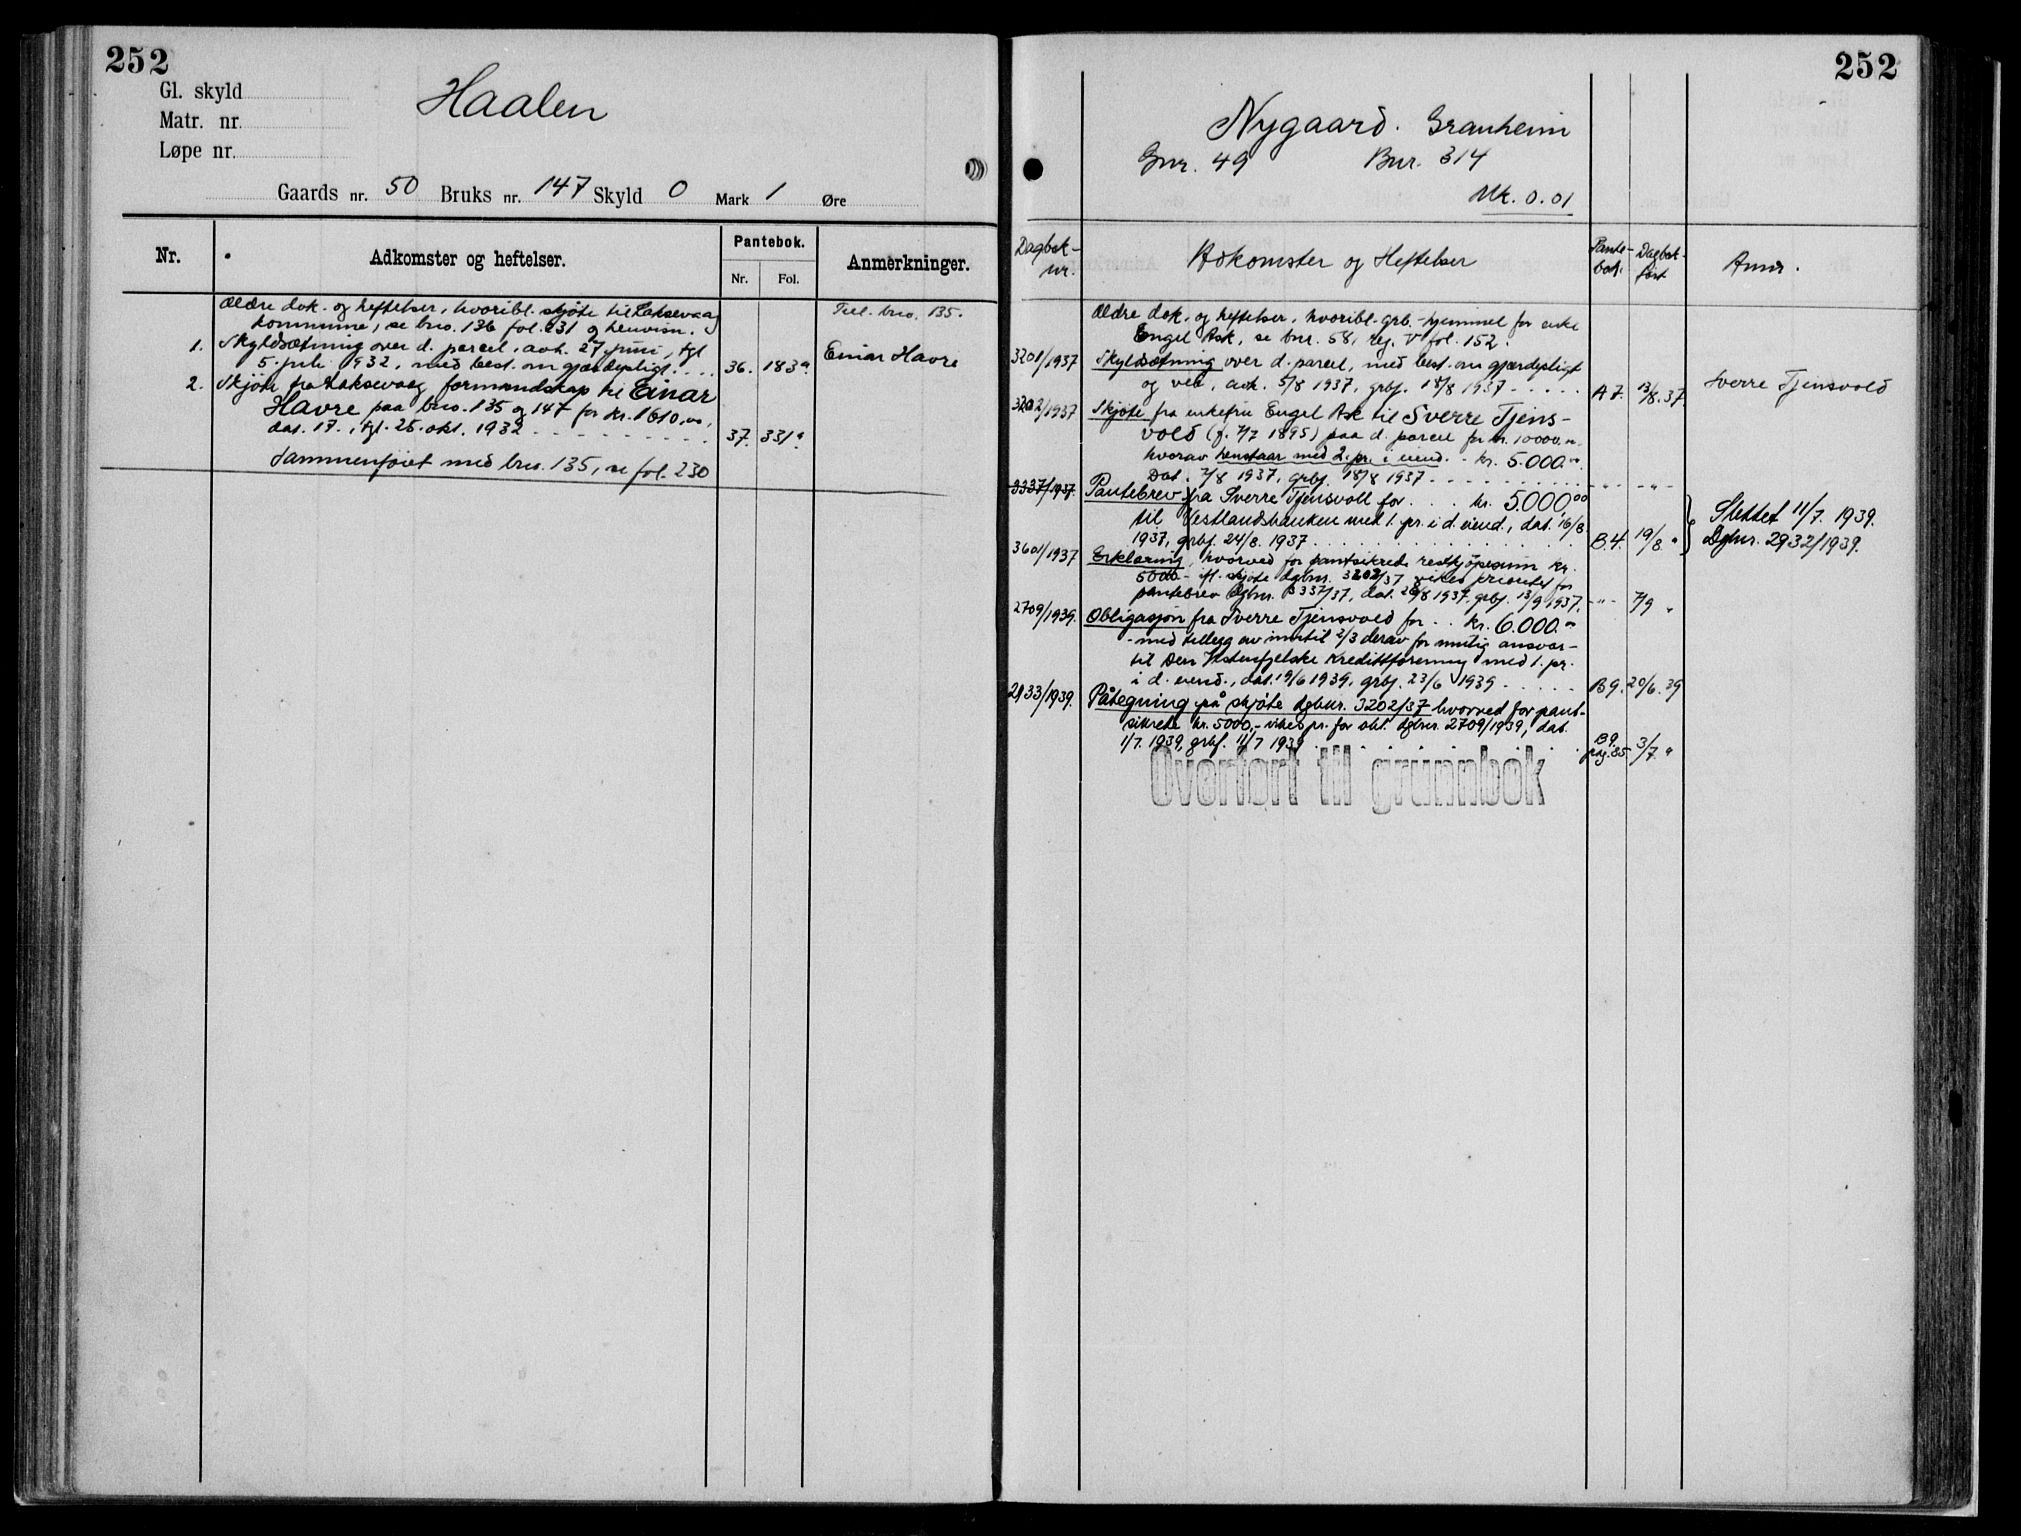 252
Gl. skyld
Matr. nr.
Løpe nr.
Haalen
Gaards nr. 50 Bruks nr. 147 Skyld 0 Mark 1 Øre
Nr.
Adkomster og heftelser.
Pantebok.
Nr. Fol.
Anmerkninger.
Ældre dok. og heftelser, hvoribl. skjøte til Laksevaag
kommune, se bno. 136 fol. 231 og henvisn.
Till. bno. 135.
1. Skyldsætning over d. parcel, avh. 27 juni, tgl.
5. juli 1932, med best. om gjærdepligt. . . 36. 183a.
Einar Havre
2. Skjøte fra Laksevaag formandskap til Einar
Havre paa bno. 135 og 147 for kr. 1610,00,
dat. 17., tgl. 25. okt. 1932 37. 331a
Sammenføiet med bno. 135, se fol. 230
252
Nygaard. Granheim
Gnr. 49 Bnr. 314
Mk. 0.01
Dagbok-
nr.
Adkomster og Heftelser
Pante-
bok.
Dagbok-
ført
Anm.
Ældre dok. og heftelser, hvoribl. grb.-hjemmel for enke
Engel Ask, se bnr. 58, reg. V fol. 152.
3201/1937 Skyldsætning over d. parcel, med best. om gjærdepligt
og vei, avh. 5/8 1937, grbf. 18/8 1937 A 7. 13/8. 37.
Sverre Tjensvold
3202/1937 Skjøte fra enkefru Engel Ask til Sverre Tjens-
vold (f. 7/7 1895) paa d. parcel for kr. 10000.00,
hvorav henstaar med 2. pr. i eiend. . kr. 5.000.00.
Dat. 7/8 1937, grbf. 18/8 1937 - " - - " -
3337/1937. Pantebrev fra Sverre Tjensvoll for . . . kr. 5.000,00
til Vestlandsbanken med 1. pr. i d. eiend., dat. 16/8
1937, grbf. 24/8. 1937 B.4. 19/8. "
Slettet 11/7. 1939.
Dgbnr. 2932/1939.
3601/1937 Erklæring, hvorved for pantsikrede restkjøpesum kr.
5000.- ifl. skjøte dgbnr. 3202/37 vikes prioritet for
pantebrev dgbnr. 3337/37, dat. 28/8 1937, grbf. 13/9 1937. - " - 7/9 "
2709/1939. Obligasjon fra Sverre Tjensvold for . . kr. 6.000.00
- med tillegg av inntil 2/3 derav for mulig ansvar -
til Den Vestenfjelske Kredittforening med 1. pr.
i d. eiend., dat. 19/6 1939, grbf. 23/6 1939 B9. 20/6. 39
2933/1939. Påtegning på skjøte dgbnr. 3202/37 hvorved for pant-
sikrede kr. 5000,- vikes pr. for obl. dgbnr. 2709/1939, dat.
1/7. 1939, grbf. 11/7 1939 B9. pag. 85 3/7. "
Overført til grunnbok